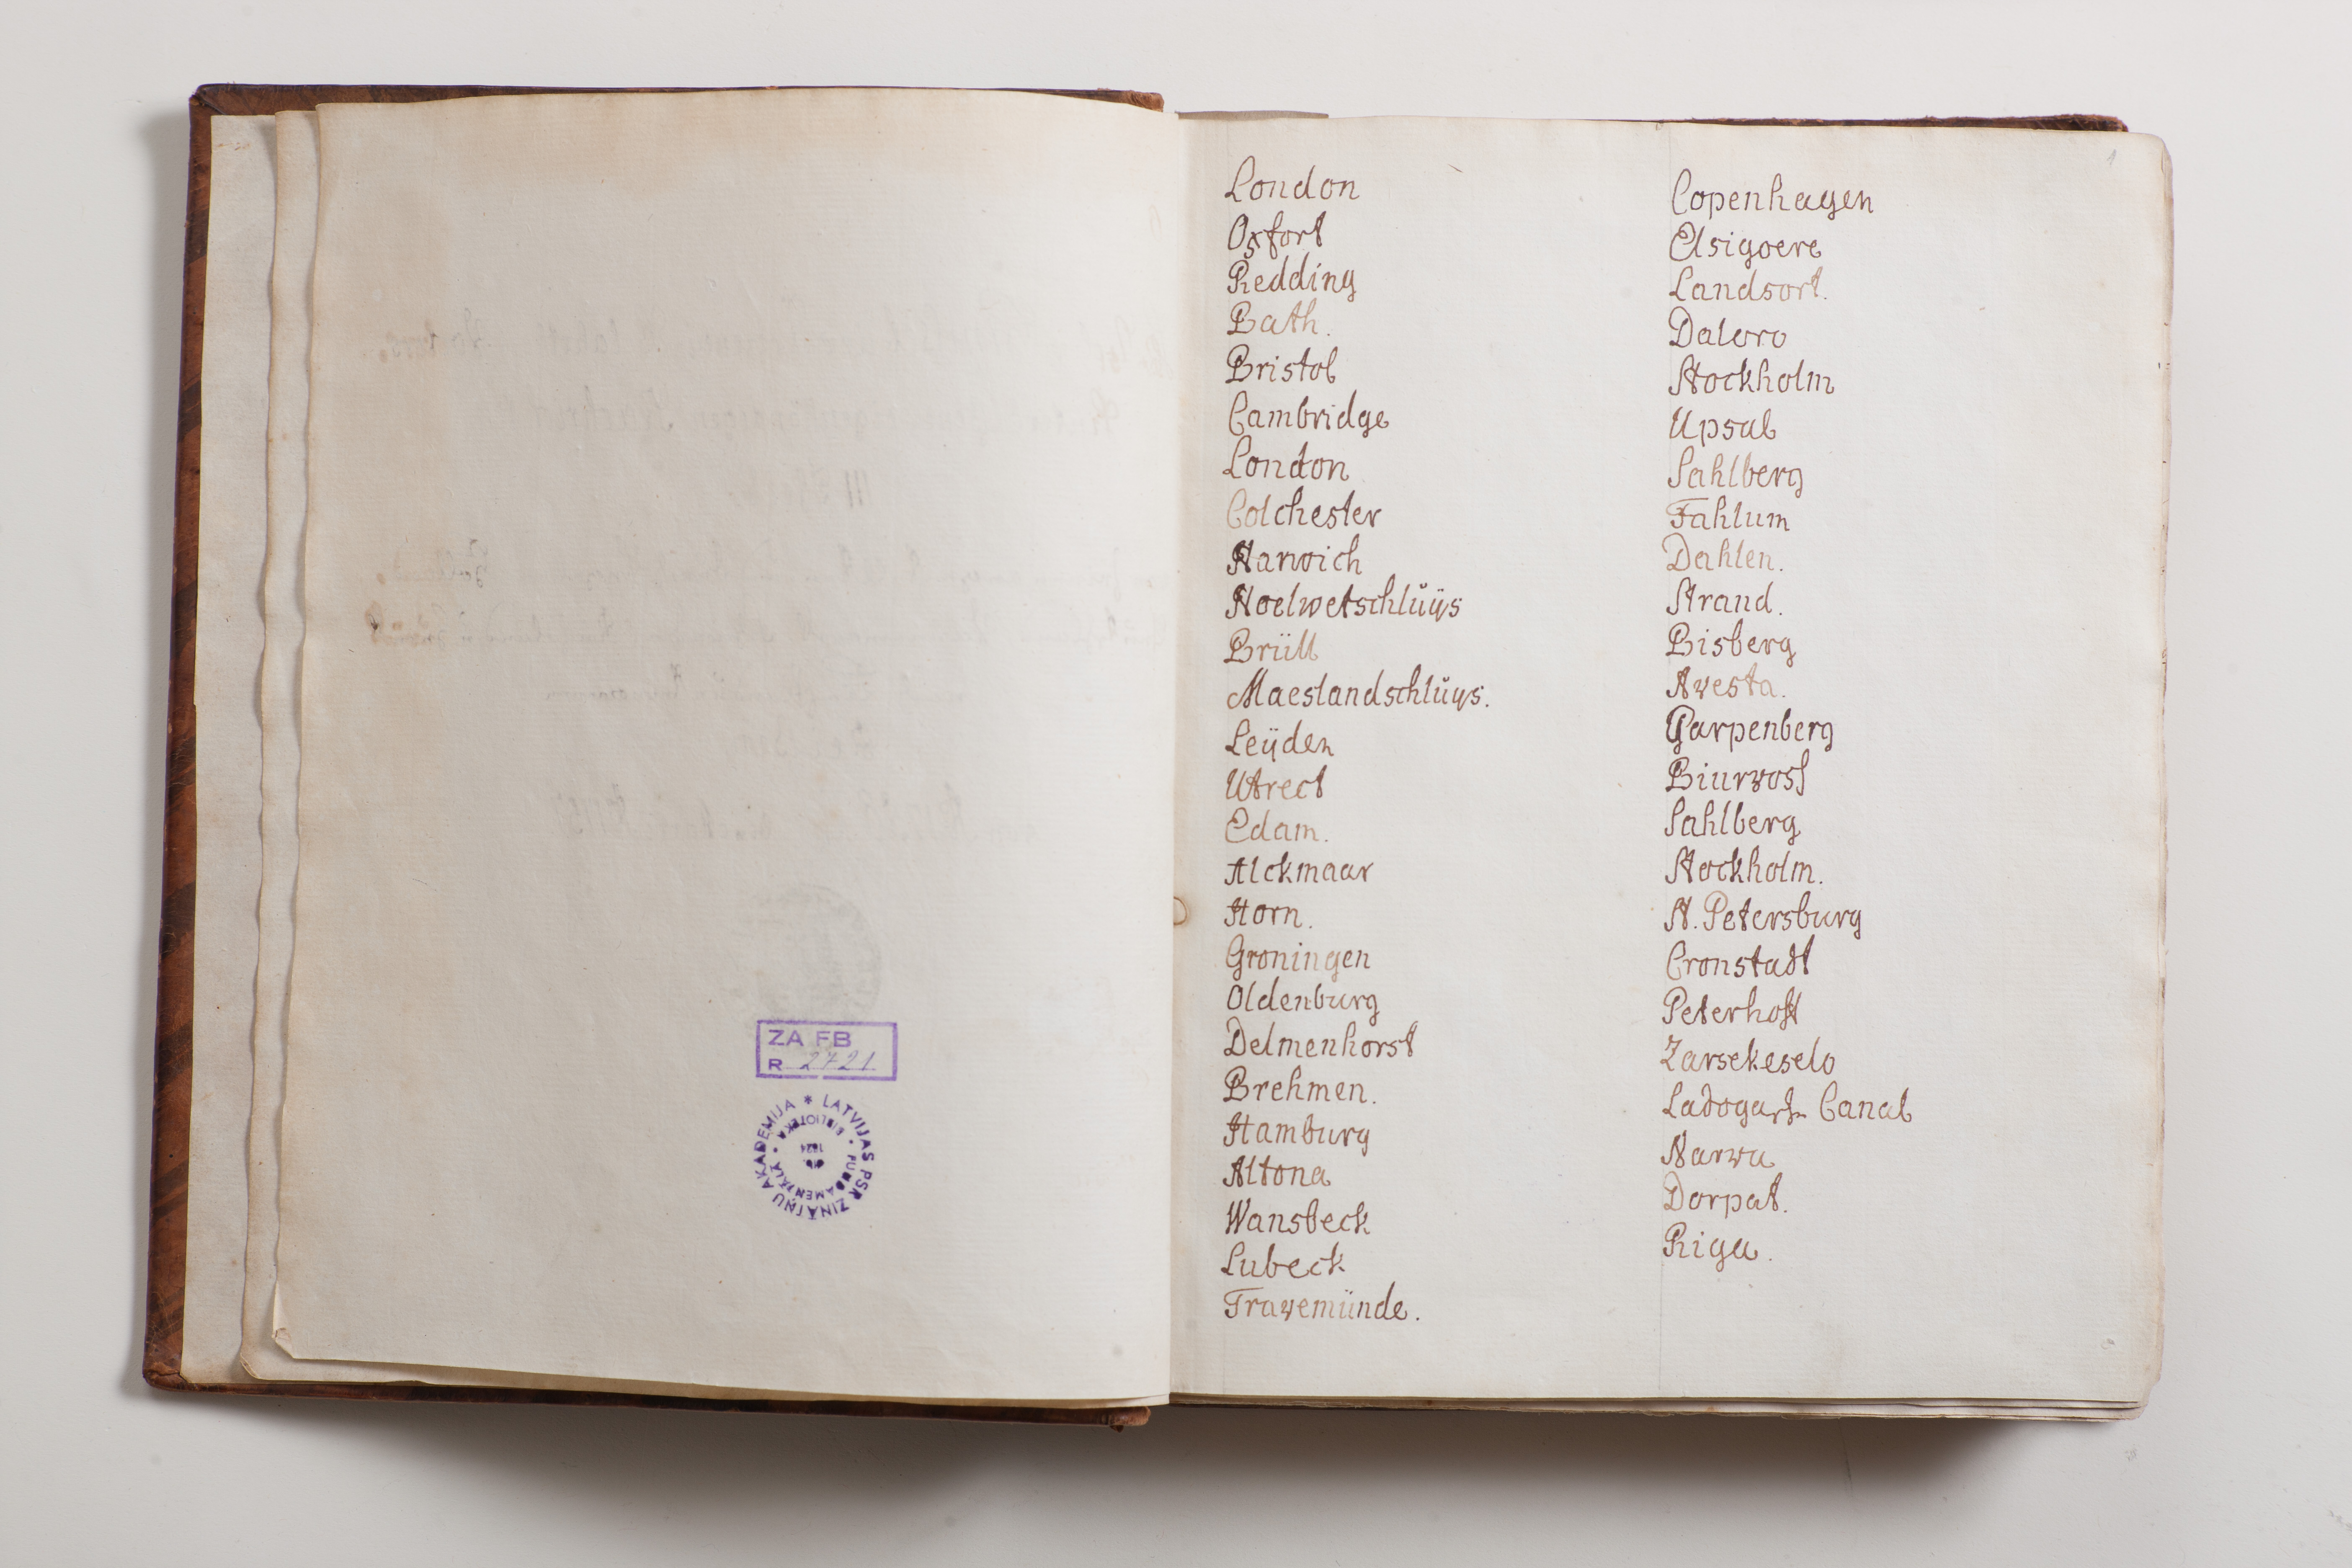 ZA FB
R 2721
LATVIJAS PSR ZINĀTŅU AKADEMIJA *
FUNDAMENTĀLĀ • BIBLIOTEKA •
1524
1
London
Oxfort
Redding
Bath.
Bristol
Cambridge
London
Colchester
Harwich
Hoelwetschlŭÿs
Brüll
Maeslandschlŭys.
Leÿden
Utrect
Edam.
Alckmaar
Horn.
Groningen
Oldenburg
Delmenhorst
Brehmen.
Hamburg
Altona
Wansbeck
Lubeck
Travemünde.
Copenhagen
Elsigoere
Landsort.
Dalero
Stockholm
Upsal
Sahlberg
Fahlum
Dahlen.
Strand.
Bisberg
Avesta.
Garpenberg
Biurvoss
Sahlberg
Stockholm.
St. Petersburg
Cronstadt
Peterhoff
Zarsekeselo
Canal
Narva
Dorpat.
Riga.